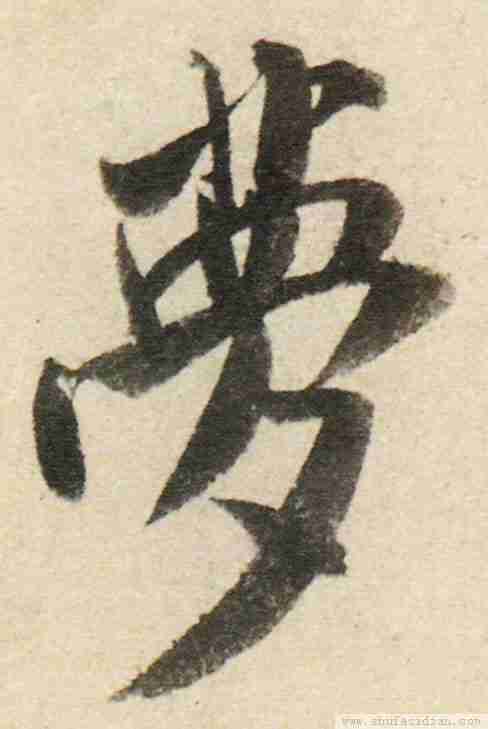 夢
www.shufazidian.com